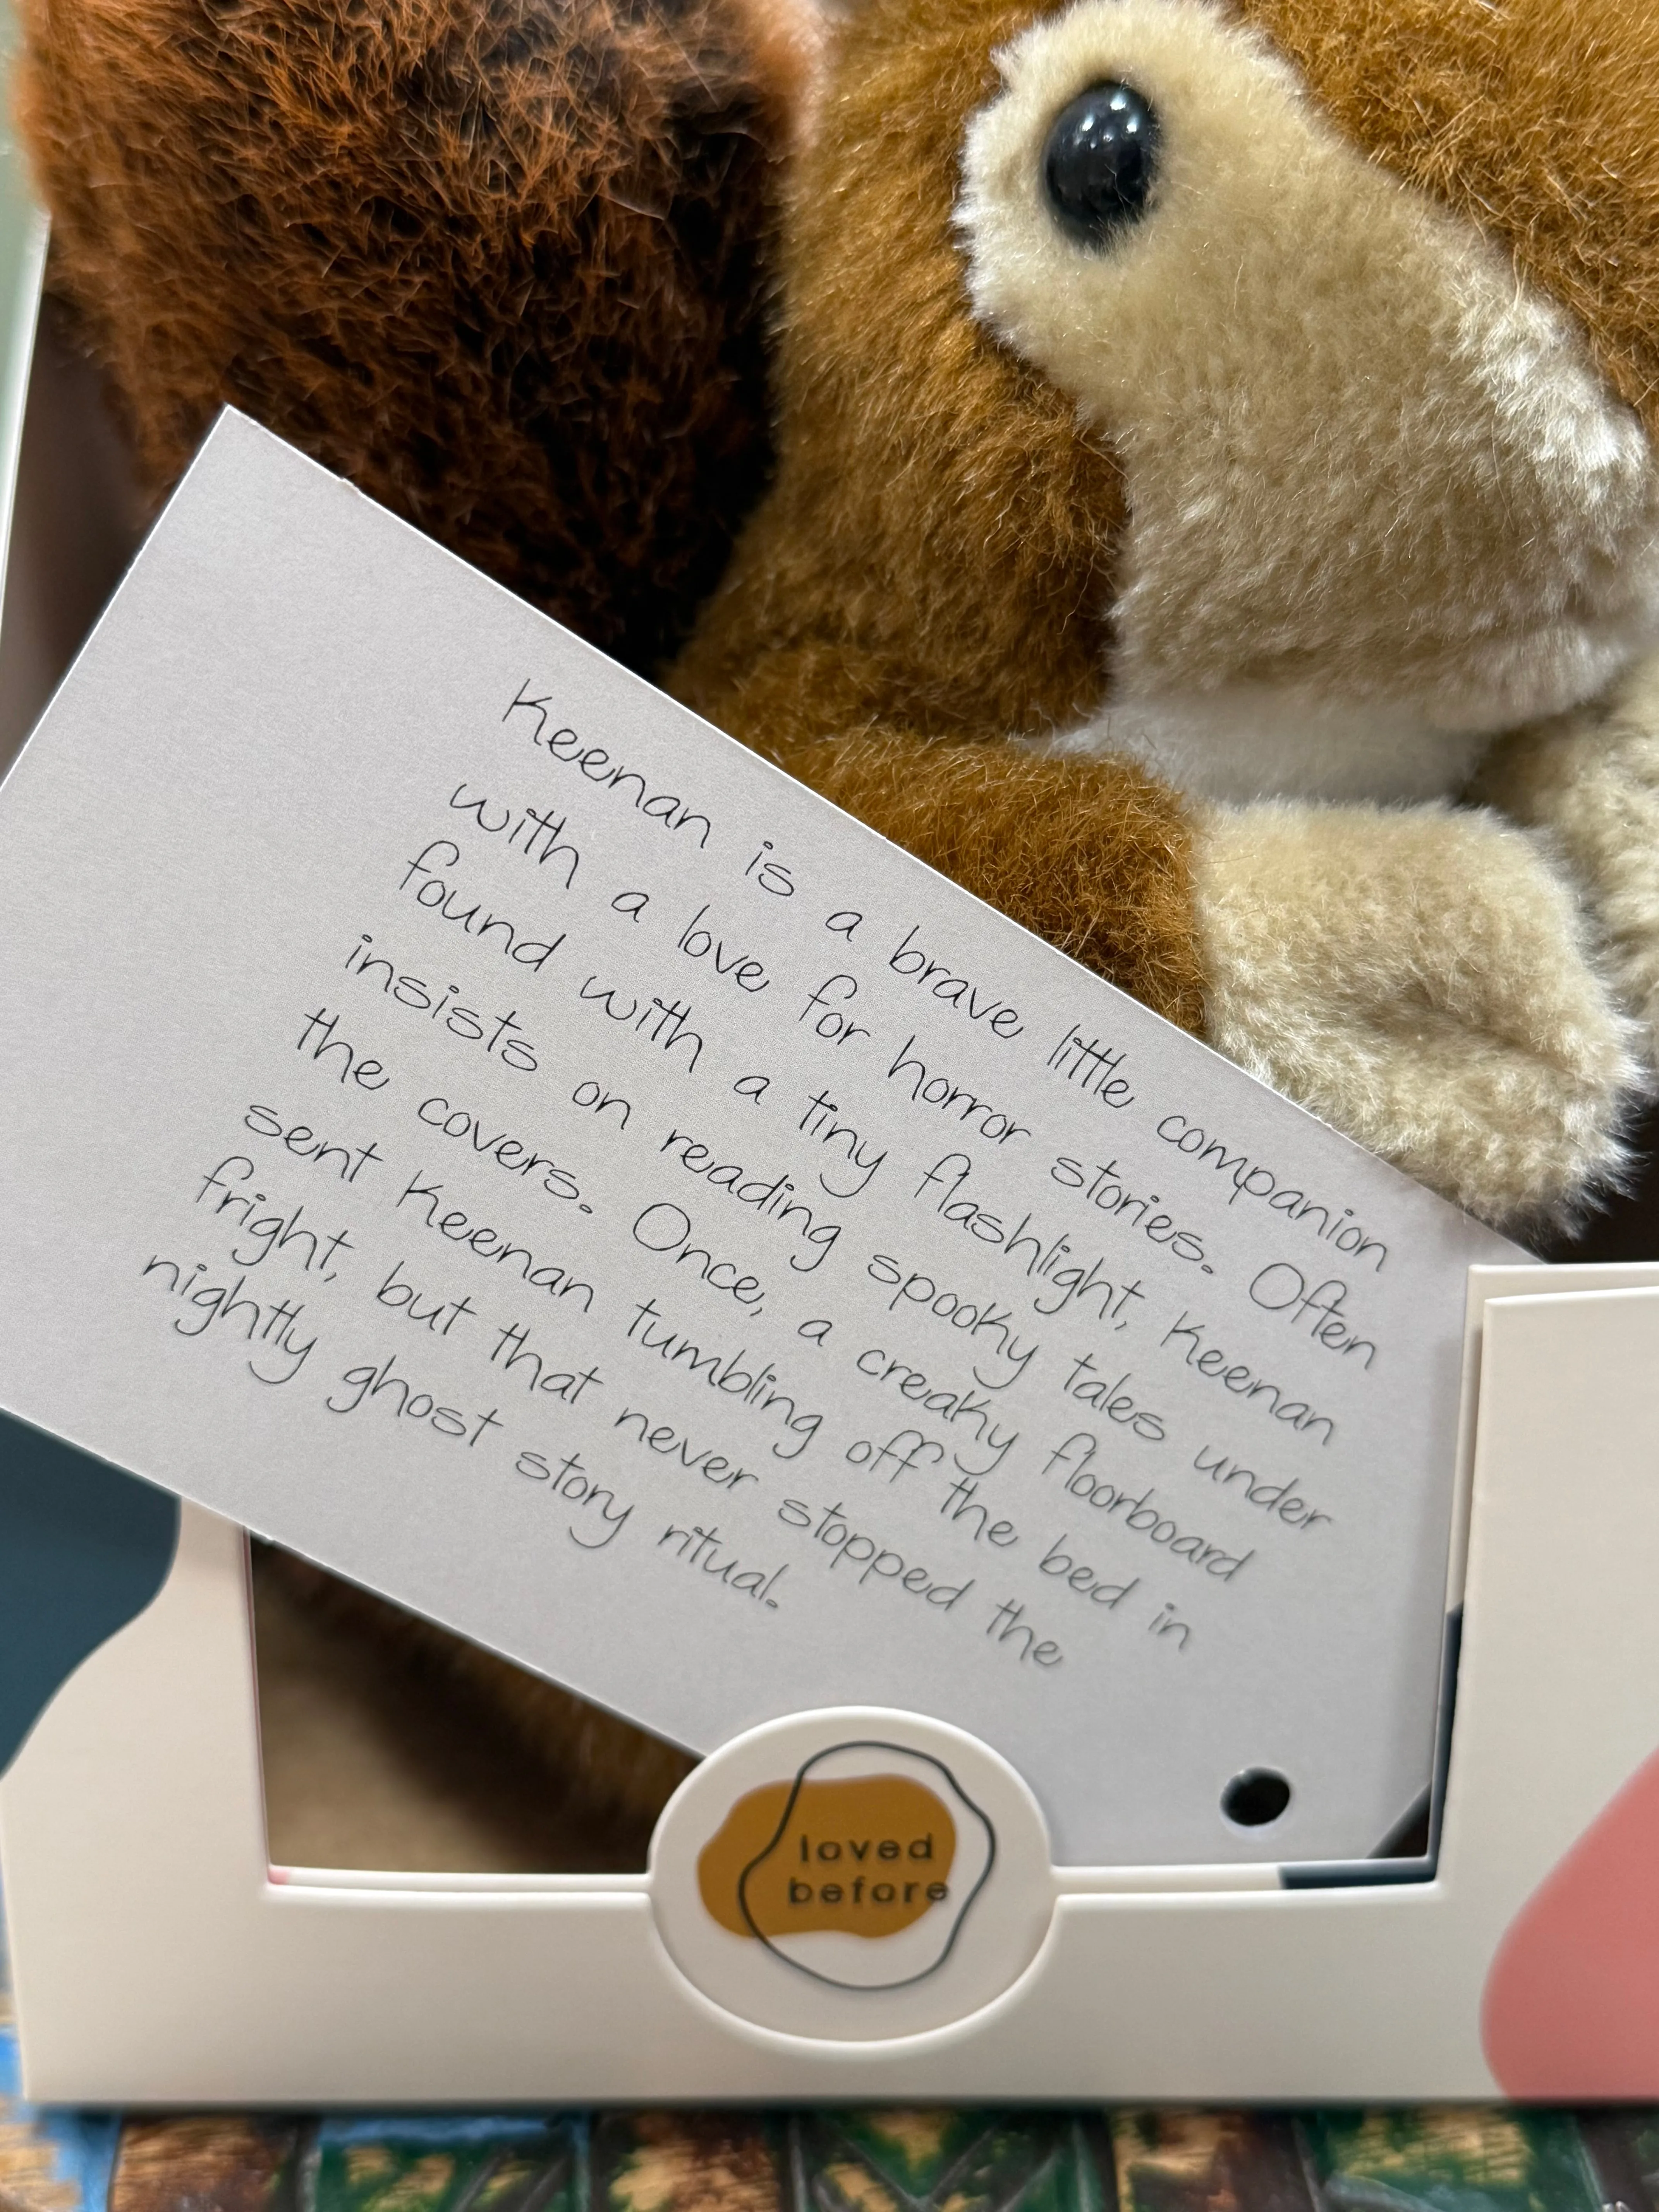 Keenan is a brave little companion
with a love for horror stories. Often
found with a tiny flashlight, Keenan
insists on reading spooky tales under
the covers. Once, a creaky floorboard
sent Keenan tumbling off the bed in
fright, but that never stopped the
nightly ghost story ritual.
loved
before